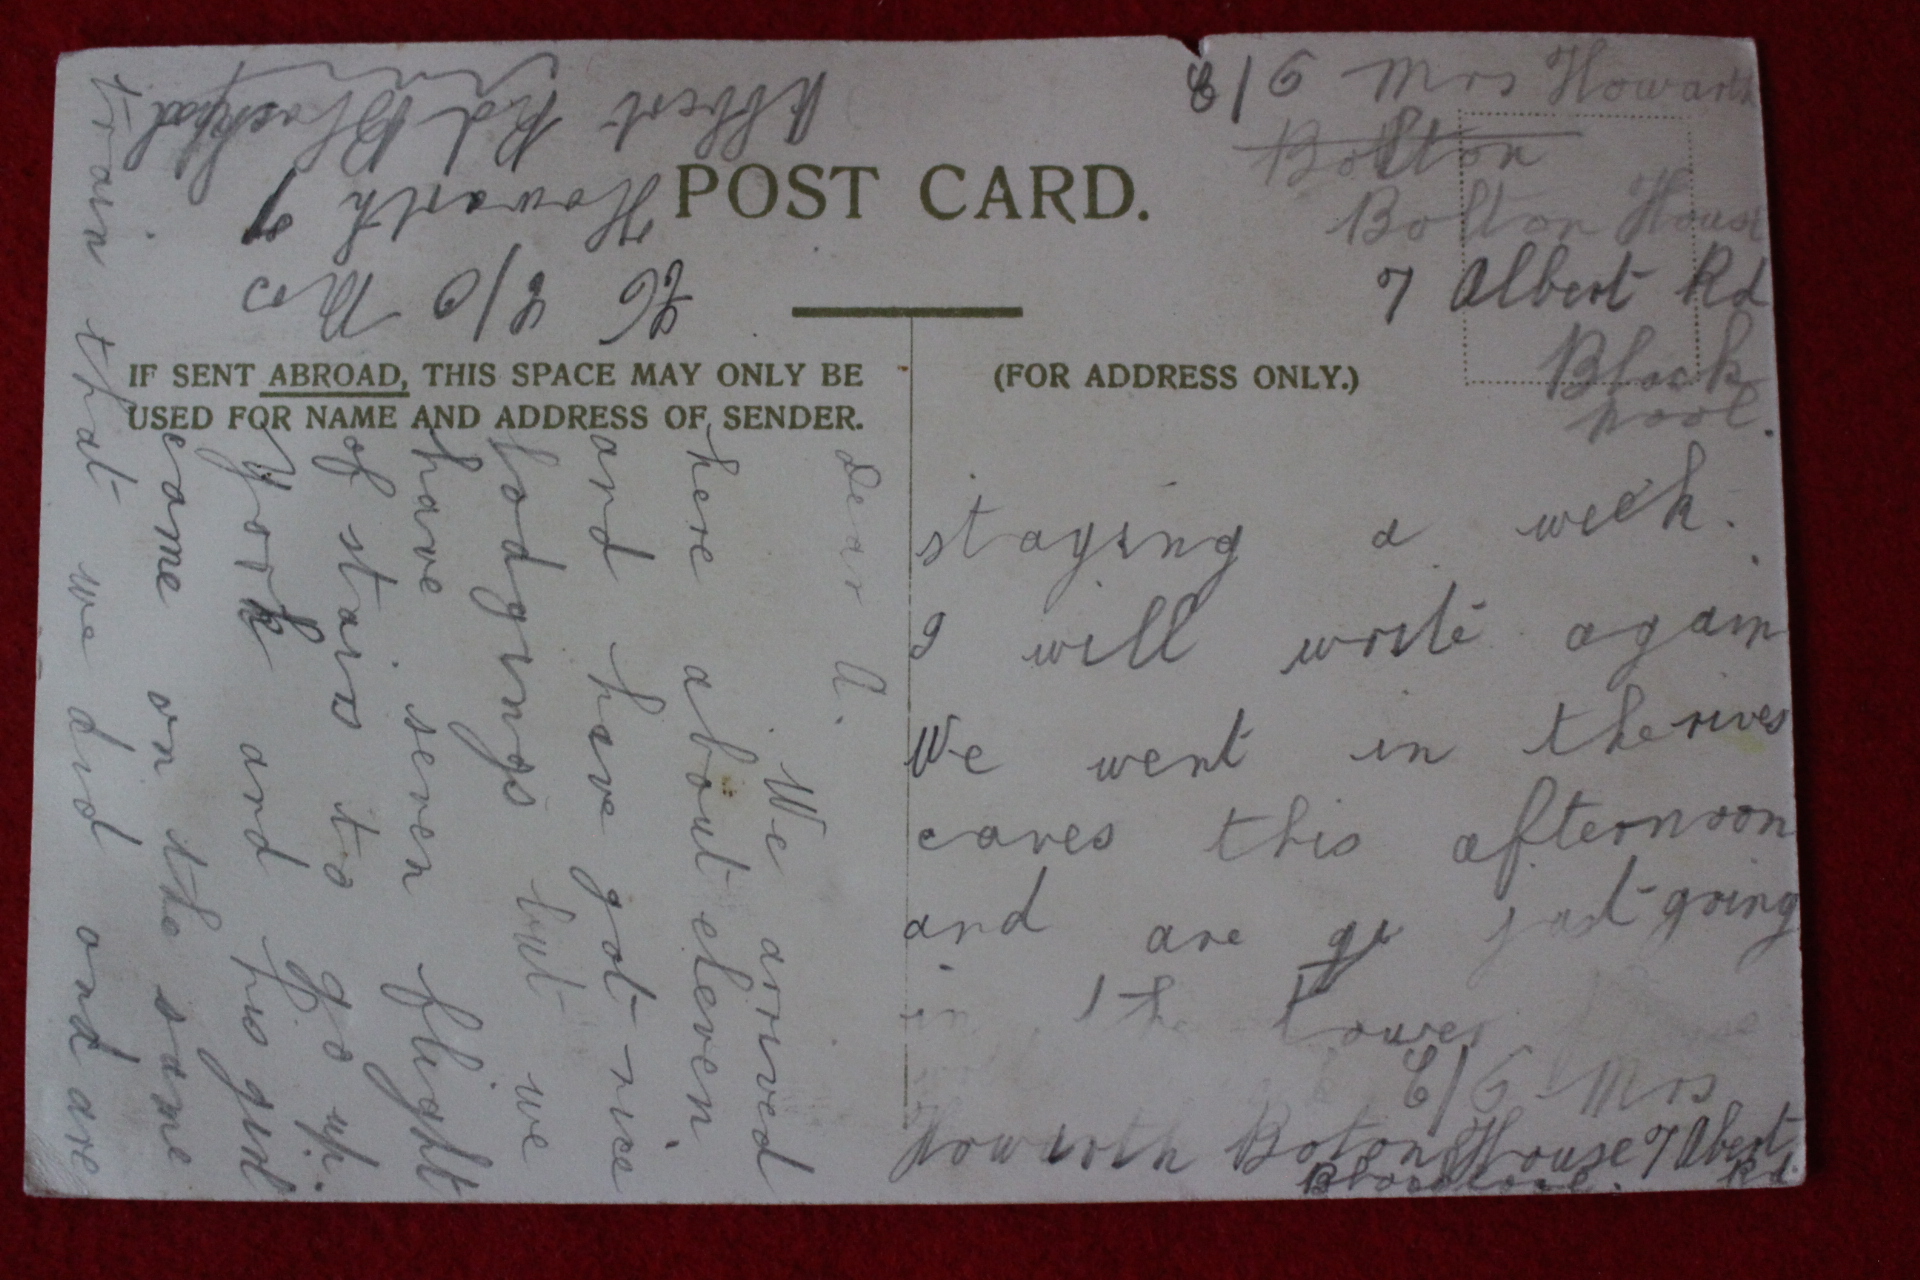 C/O Mrs Howarth
Bolton
Bolton House
7 Albert Rd
Black
pool.
POST CARD.
IF SENT ABROAD, THIS SPACE MAY ONLY BE
USED FOR NAME AND ADDRESS OF SENDER.
(FOR ADDRESS ONLY.)
Dear A.
We arrived
here about eleven
and have got nice
lodgings but we
have seven flight
of stairs to go up.
York and his girl
came on the same
train that we did and are
staying a week.
I will write again
We went in the rives
caves this afternoon
and are go just going
in the tower
C/O Mrs
Howarth Boton House 7 Abert
Rd
Blackpool.
C/O Mrs
Howarth 7
Albert Rd Blackpool